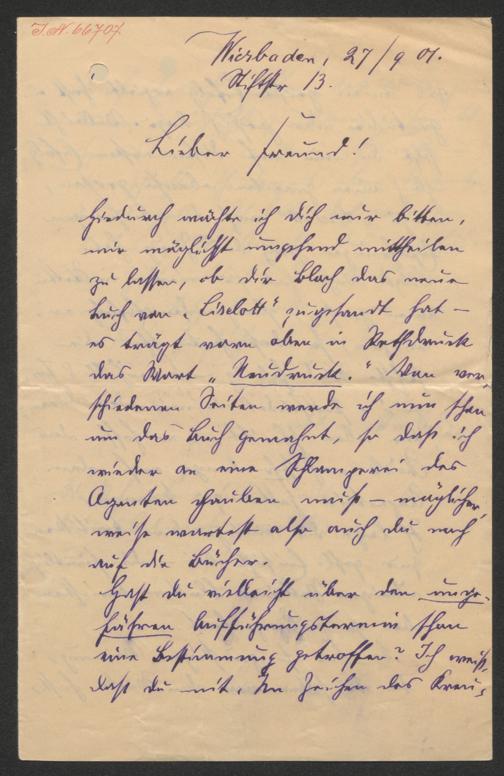 I.N. 66707
Wiesbaden, 27/9 01.
Stiftstr 13.
Lieber Freund!
Hiedurch möchte ich dich nur bitten,
mir möglichst umgehend mittheilen
zu lassen, ob dir Bloch das neue
Buch von „Liselott“ zugesandt hat –
es trägt vorn oben in Rothdruck
das Wort „Neudruck.“ Von ver-
schiedenen Seiten werde ich nun schon
um das Buch gemahnt, so daß ich
wieder an eine Schlamperei des
Agenten glauben muß – möglicher-
weise wartest also auch du noch
auf die Bücher.
Hast du vielleicht über den unge-
fähren Aufführungstermin schon
eine Bestimmung getroffen? Ich weiß,
daß du mit „Im Zeichen des Kreu-